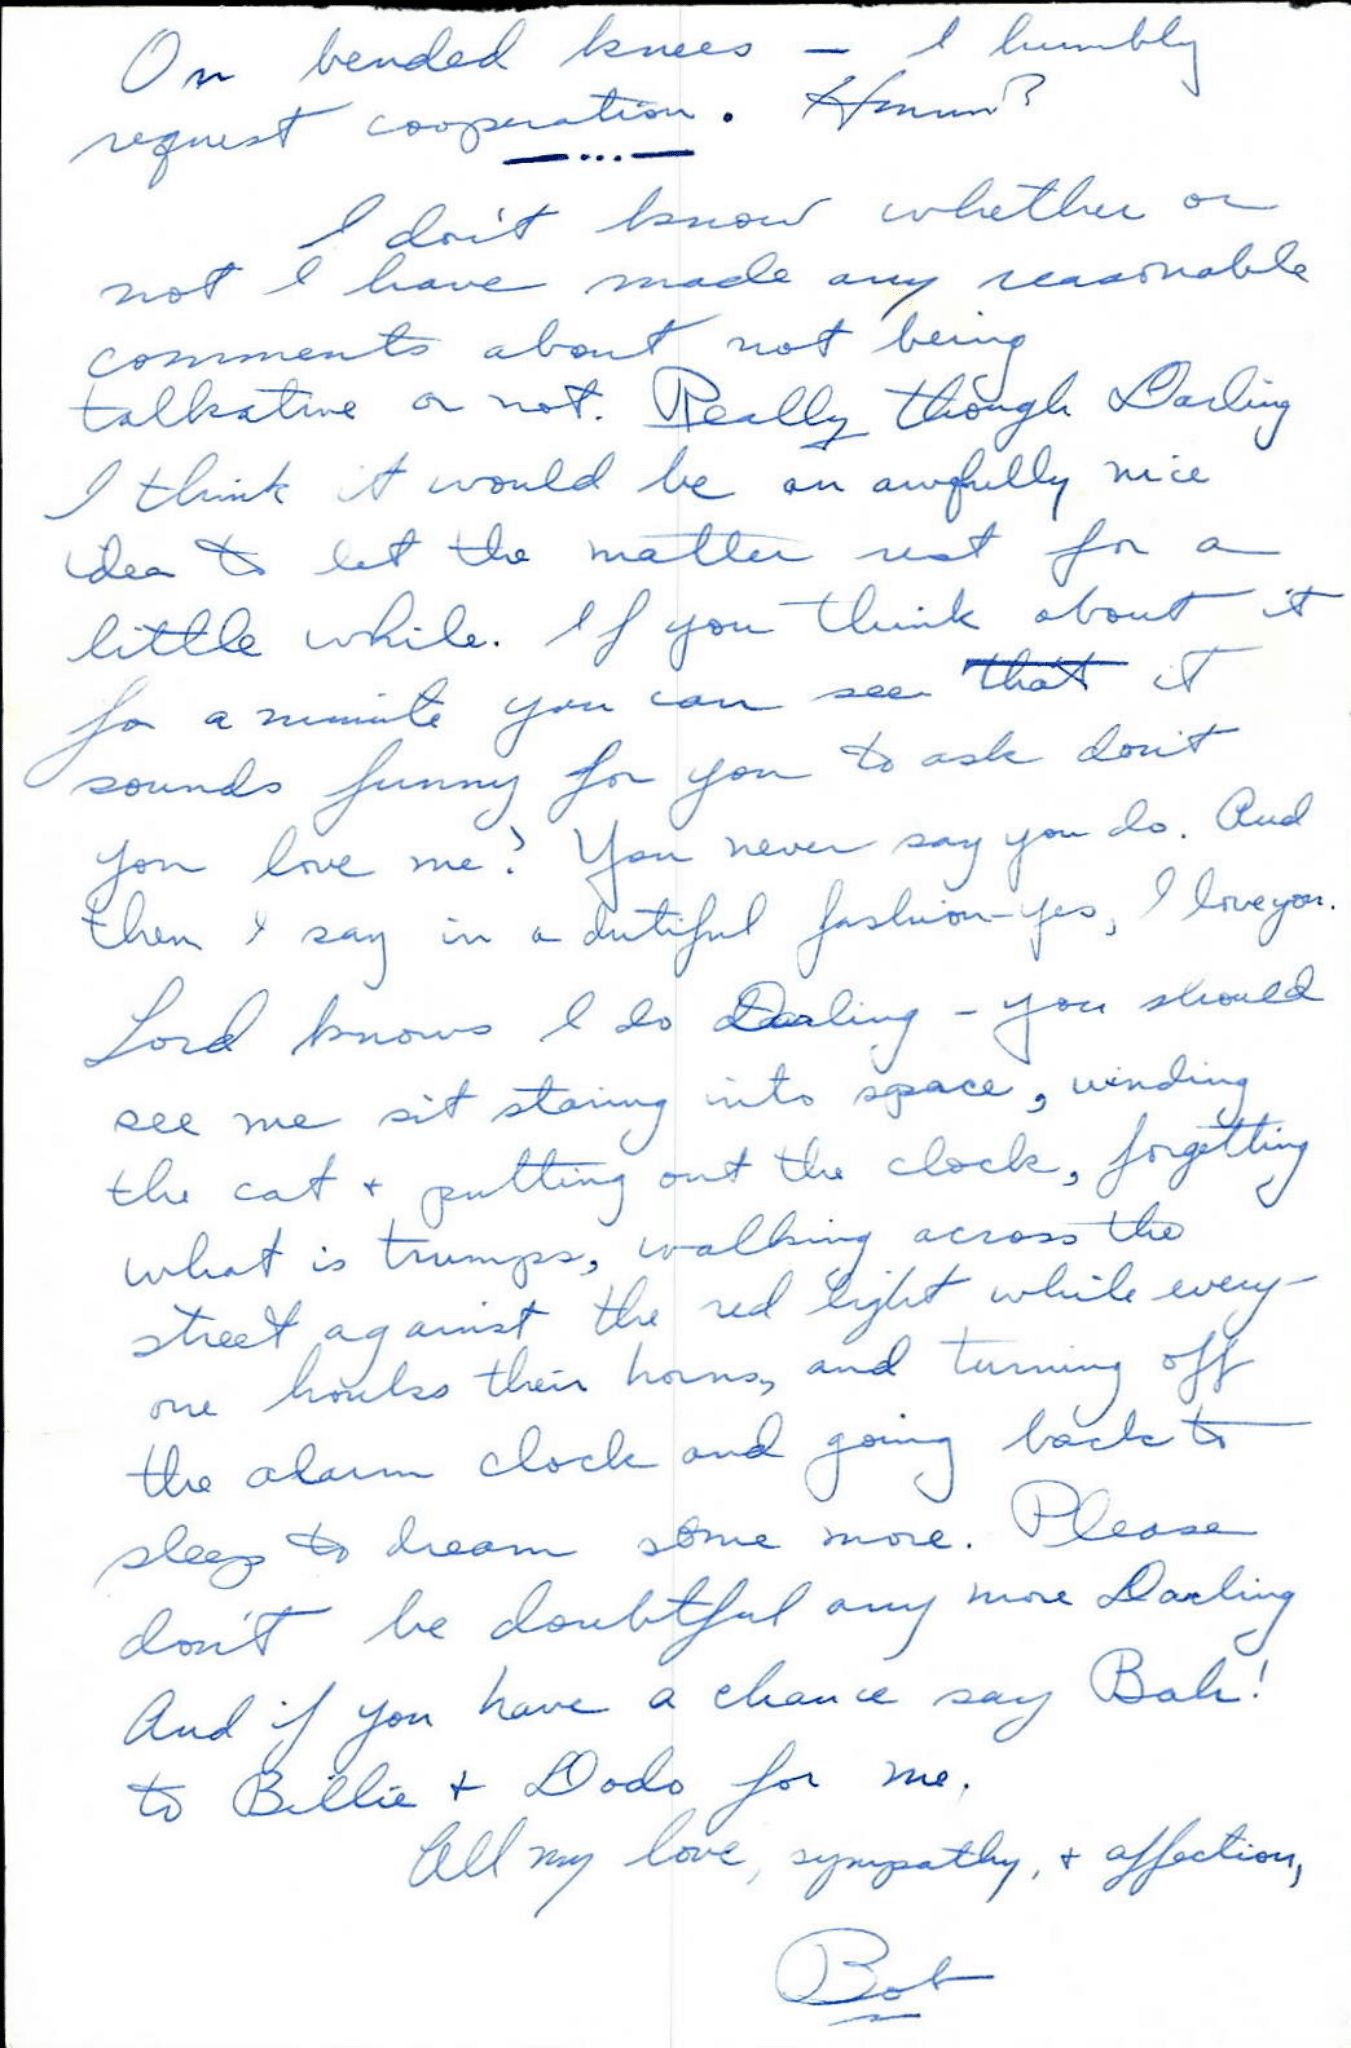 On bended knees - I humbly
request cooperation. Hmmm?
I don't know whether or
not I have made any reasonable
comments about not being
talkative or not. Really though Darling
I think it would be an awfully nice
idea to let the matter rest for a
little while. If you think about it
for a minute you can see that it
sounds funny for you to ask don't
you love me? You never say you do. And
then I say in a dutiful fashion - yes, I love you.
Lord knows I do Darling - you should
see me sit staring into space, winding
the cat + putting out the clock, forgetting
what is trumps, walking across the
street against the red light while every-
one honks their horns, and turning off
the alarm clock and going back to
sleep to dream some more. Please
don't be doubtful any more Darling
And if you have a chance say Bah!
to Billie + Dodo for me.
All my love, sympathy, + affection,
Bob